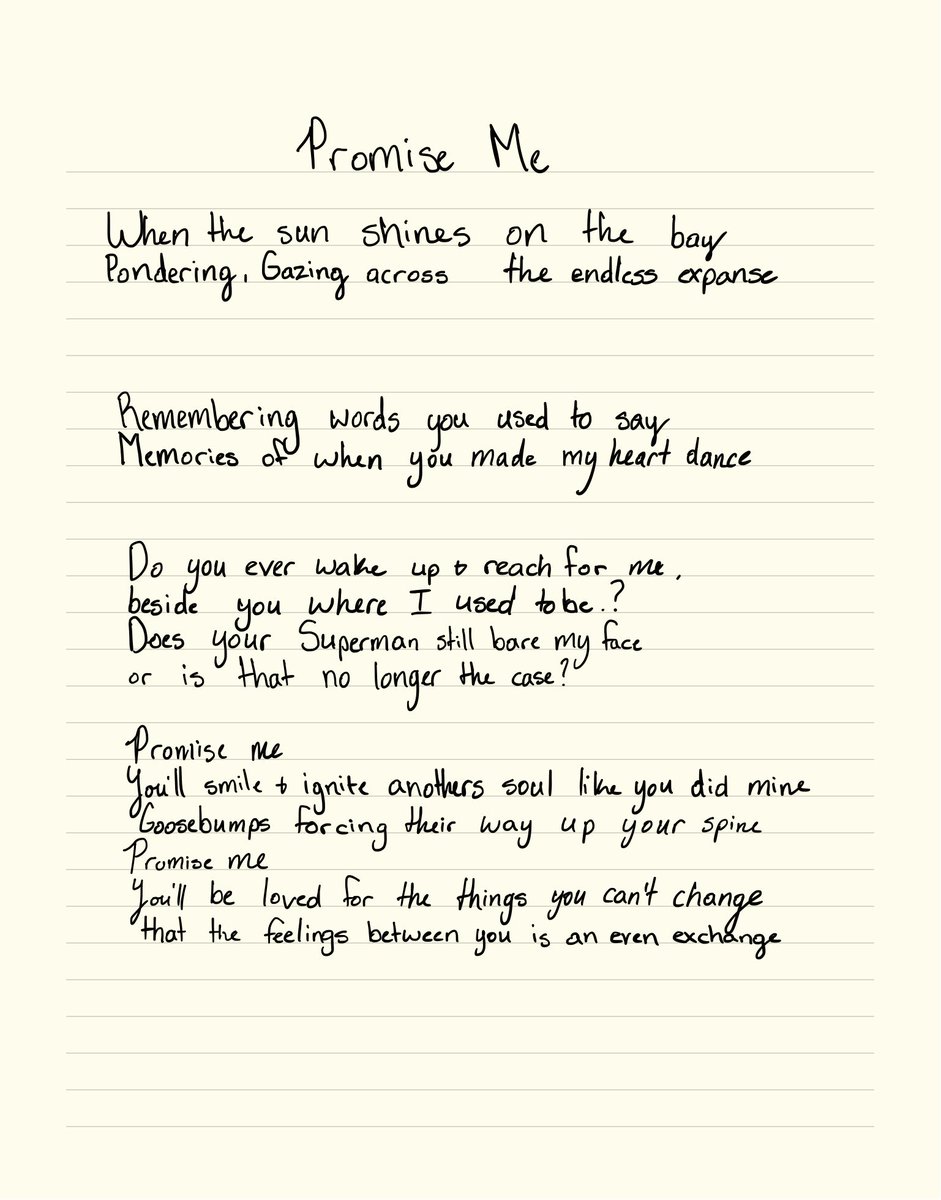 Promise Me
When the sun shines on the bay
Pondering, Gazing across the endless expanse
Remembering words you used to say
Memories of when you made my heart dance
Do you ever wake up & reach for me,
beside you where I used to be.?
Does your Superman still bare my face
or is that no longer the case?
Promise me
You'll smile & ignite anothers soul like you did mine
Goosebumps forcing their way up your spine
Promise me
You'll be loved for the things you can't change
that the feelings between you is an even exchange